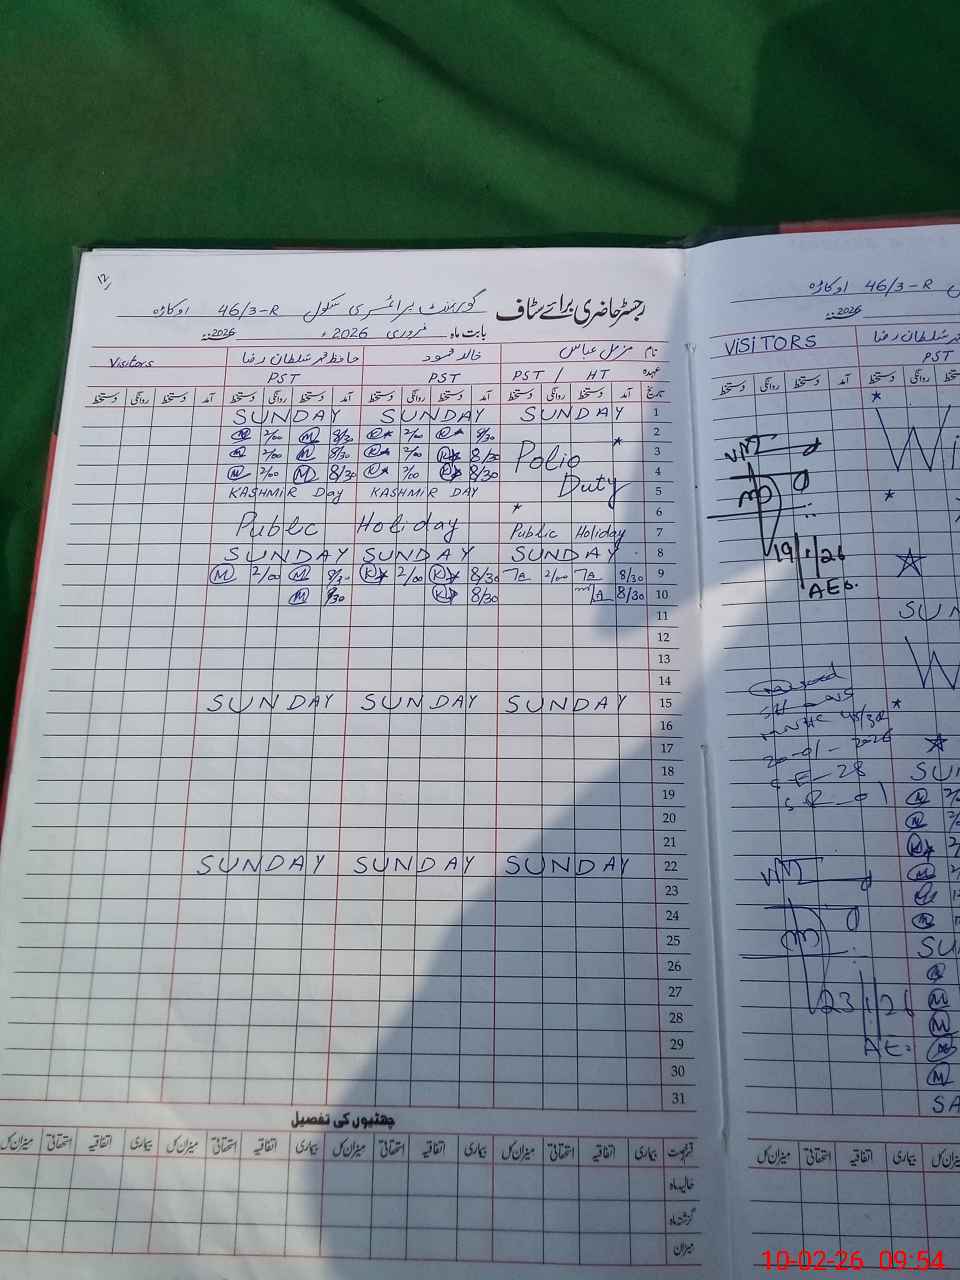 ۱۲
رجسٹر حاضری برائے سٹاف گورنمنٹ پرائمری سکول 46/3-R اوکاڑہ
بابت ماہ فروری 2026ء 2026ء
نام مزمل عباس خالد محمود حافظ محمد سلطان رضا Visitors
عہدہ PST / HT PST PST
تاریخ آمد دستخط روانگی دستخط آمد دستخط روانگی دستخط آمد دستخط روانگی دستخط آمد دستخط روانگی دستخط
SUNDAY SUNDAY SUNDAY 1
M 2/00 M 8/30 2/00 8/30 2
M 2/00 M 8/30 2/00 8/30 Polio 3
M 2/00 M 8/30 2/00 8/30 4
KASHMIR Day KASHMIR DAY Duty 5
6
Public Holiday Public Holiday 7
SUNDAY SUNDAY SUNDAY 8
M 2/00 M 8/30 K 2/00 K 8/30 TA 2/00 TA 8/30 9
M 8/30 K 8/30 8/30 10
11
12
13
14
SUNDAY SUNDAY SUNDAY 15
16
17
18
19
20
21
SUNDAY SUNDAY SUNDAY 22
23
24
25
26
27
28
29
30
31
چھٹیوں کی تفصیل
قسم رخصت بیماری اتفاقیہ استحقاقی میزان کل بیماری اتفاقیہ استحقاقی میزان کل بیماری اتفاقیہ استحقاقی میزان کل بیماری اتفاقیہ استحقاقی میزان کل
حالیہ ماہ
گزشتہ ماہ
میزان
46/3-R اوکاڑہ
2026ء
VISITORS سلطان رضا
PST
آمد دستخط روانگی دستخط
19/1/26
AEO.
SUN
20-01-2026
SE-28
SR-01
SUN
23/1/26
AE.
SA
بیماری اتفاقیہ استحقاقی میزان کل
10-02-26 09:54